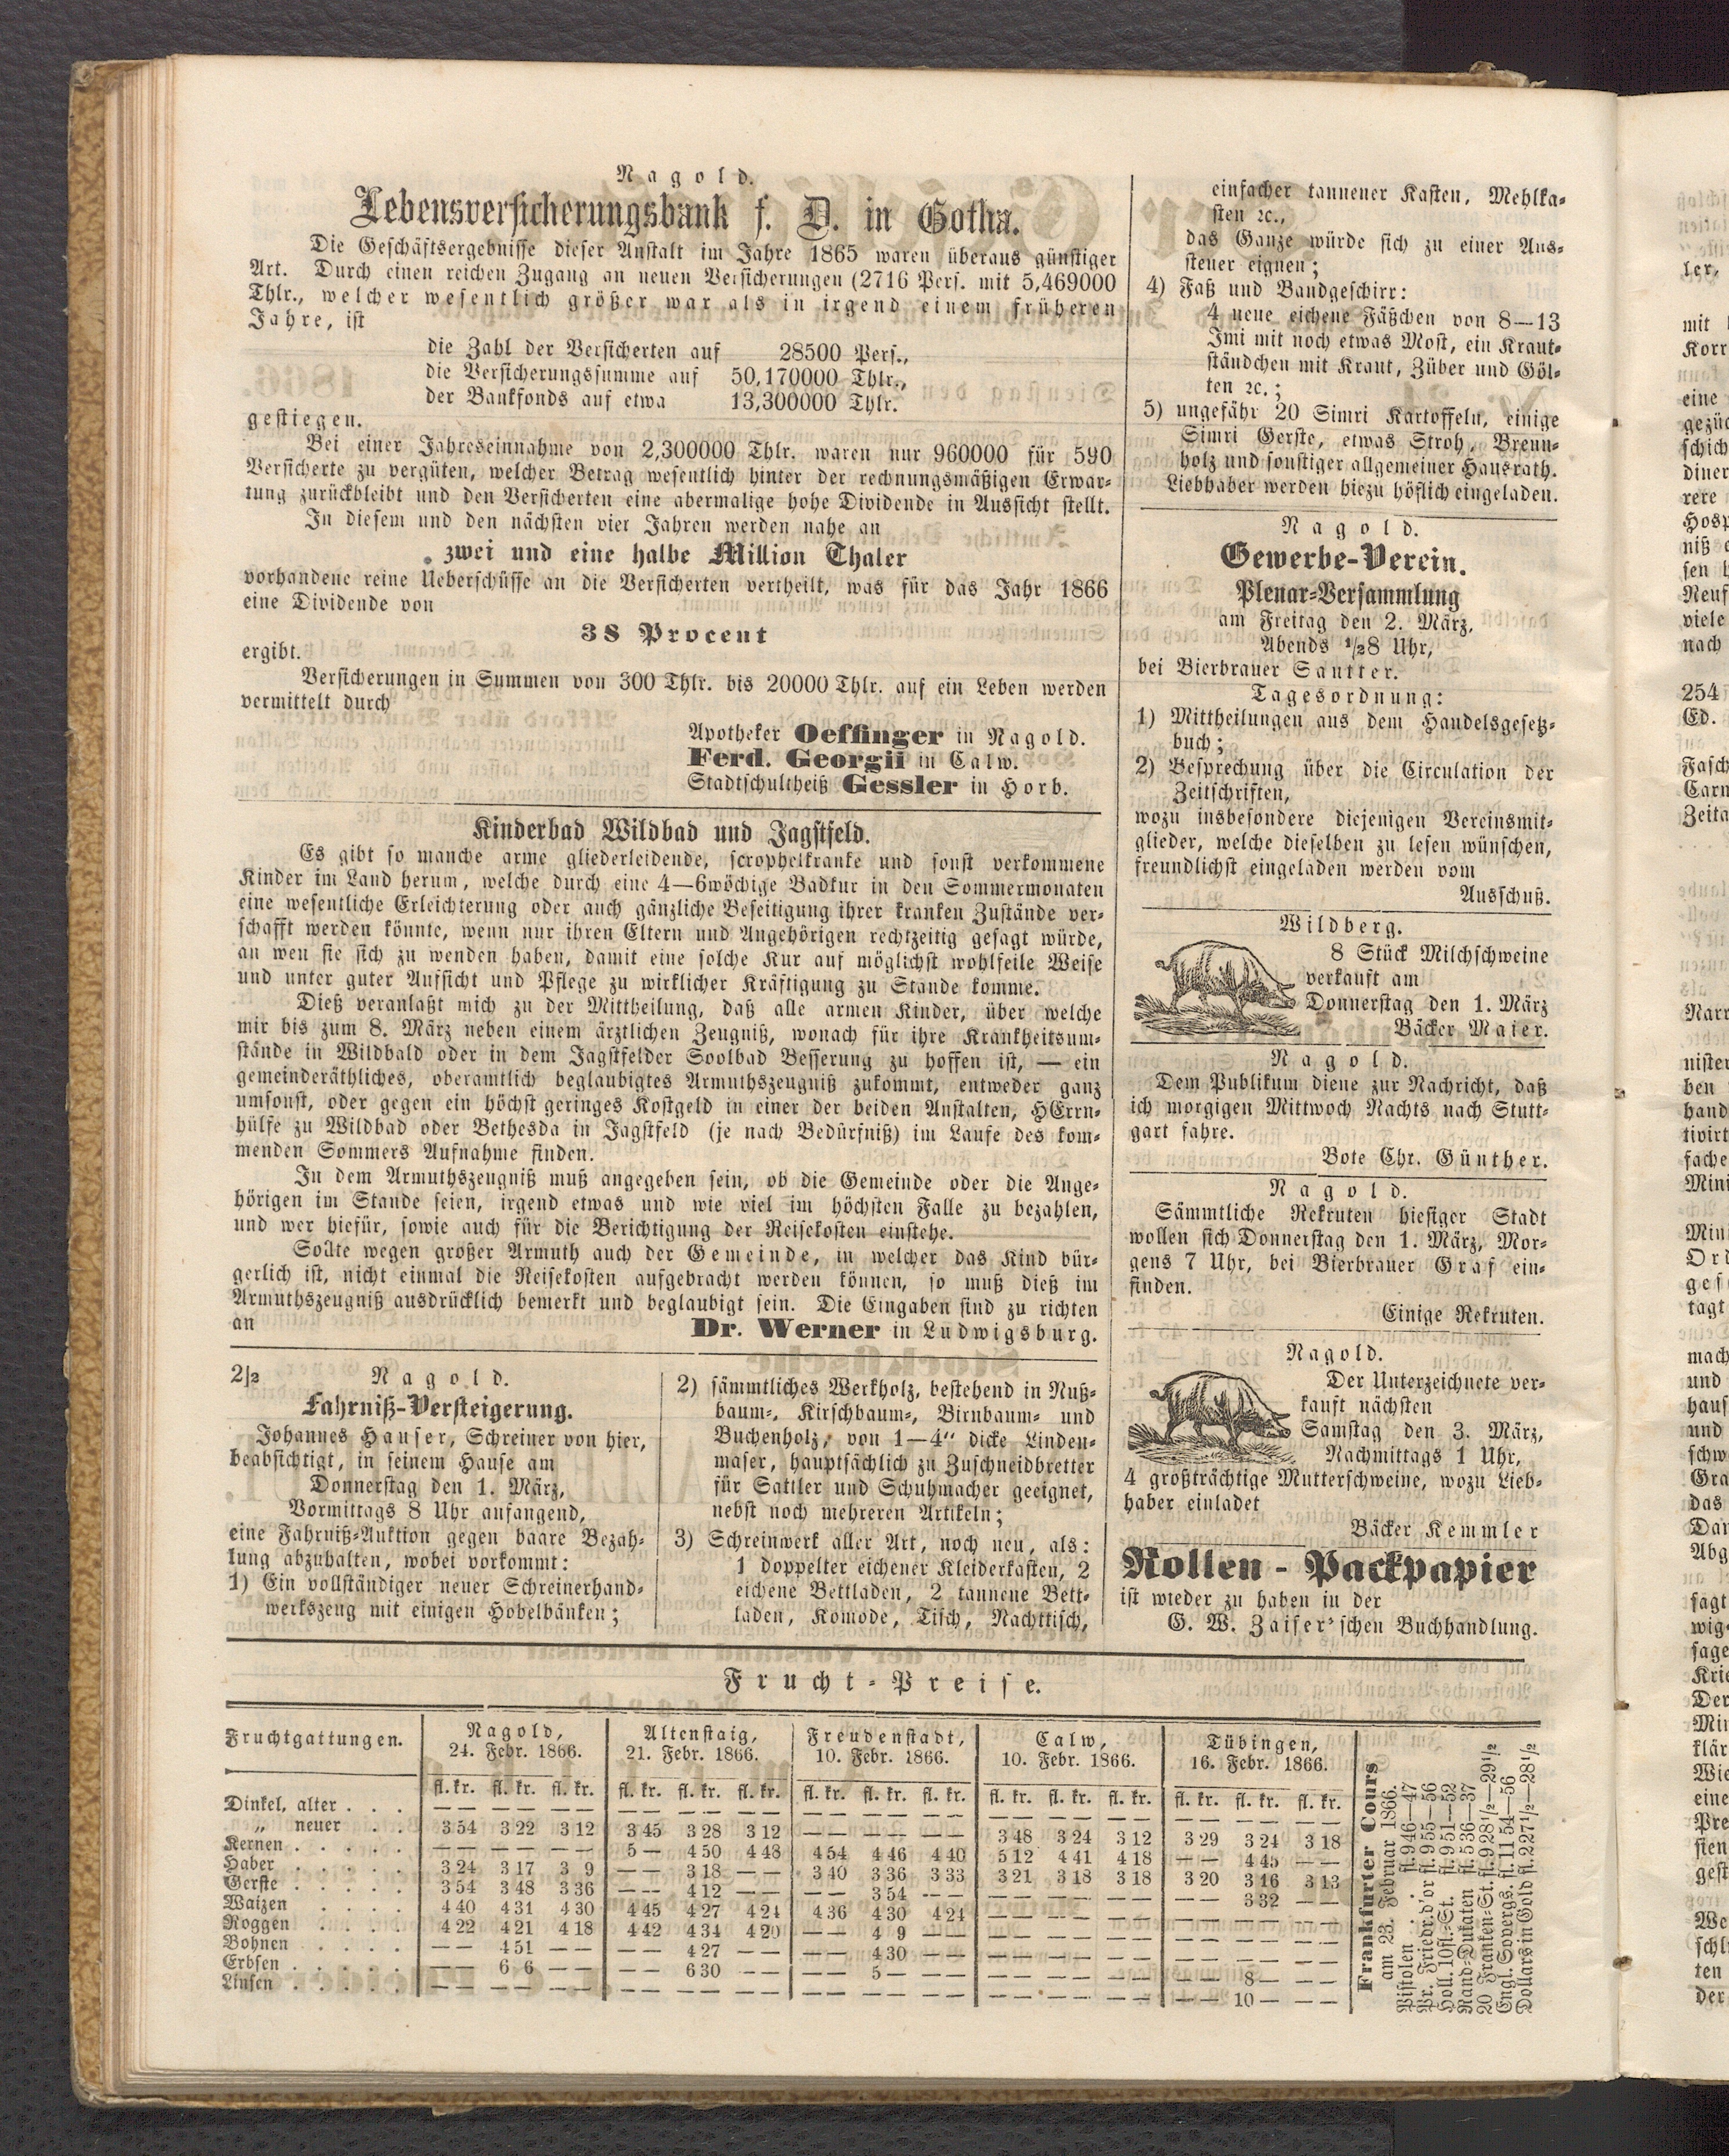 Nagold.
Lebensversicherungsbank f. D. in Gotha.
Die Geschäftsergebnisse dieser Anstalt im Jahre 1865 waren überaus günstiger
Art. Durch einen reichen Zugang an neuen Versicherungen (2716 Pers. mit 5,469000
Thlr., welcher wesentlich größer war als in irgend einem früheren
Jahre, ist
die Zahl der Versicherten auf 28500 Pers.,
die Versicherungssumme auf 50,170000 Thlr.,
der Bankfonds auf etwa 13,300000 Thlr.
gestiegen.
Bei einer Jahreseinnahme von 2,300000 Thlr. waren nur 960000 für 590
Versicherte zu vergüten, welcher Betrag wesentlich hinter der rechnungsmäßigen Erwar-
tung zurückbleibt und den Versicherten eine abermalige hohe Dividende in Aussicht stellt.
In diesem und den nächsten vier Jahren werden nahe an
zwei und eine halbe Million Thaler
vorhandene reine Ueberschüsse an die Versicherten vertheilt, was für das Jahr 1866
eine Dividende von
38 Procent
ergibt.
Versicherungen in Summen von 300 Thlr. bis 20000 Thlr. auf ein Leben werden
vermittelt durch
Apotheker Oeffinger in Nagold.
Ferd. Georgii in Calw.
Stadtschultheiß Gessler in Horb.
Kinderbad Wildbad und Jagstfeld.
Es gibt so manche arme gliederleidende, scrophelkranke und sonst verkommene
Kinder im Land herum, welche durch eine 4—6wöchige Badkur in den Sommermonaten
eine wesentliche Erleichterung oder auch gänzliche Beseitigung ihrer kranken Zustände ver-
schafft werden könnte, wenn nur ihren Eltern und Angehörigen rechtzeitig gesagt würde,
an wen sie sich zu wenden haben, damit eine solche Kur auf möglichst wohlfeile Weise
und unter guter Aufsicht und Pflege zu wirklicher Kräftigung zu Stande komme.
Dieß veranlaßt mich zu der Mittheilung, daß alle armen Kinder, über welche
mir bis zum 8. März neben einem ärztlichen Zeugniß, wonach für ihre Krankheitsum-
stände in Wildbald oder in dem Jagstfelder Soolbad Besserung zu hoffen ist, — ein
gemeinderäthliches, oberamtlich beglaubigtes Armuthszeugniß zukommt, entweder ganz
umsonst, oder gegen ein höchst geringes Kostgeld in einer der beiden Anstalten, HErrn-
hülfe zu Wildbad oder Bethesda in Jagstfeld (je nach Bedürfniß) im Laufe des kom-
menden Sommers Aufnahme finden.
In dem Armuthszeugniß muß angegeben sein, ob die Gemeinde oder die Ange-
hörigen im Stande seien, irgend etwas und wie viel im höchsten Falle zu bezahlen,
und wer hiefür, sowie auch für die Berichtigung der Reisekosten einstehe.
Sollte wegen großer Armuth auch der Gemeinde, in welcher das Kind bür-
gerlich ist, nicht einmal die Reisekosten aufgebracht werden können, so muß dieß im
Armuthszeugniß ausdrücklich bemerkt und beglaubigt sein. Die Eingaben sind zu richten
an Dr. Werner in Ludwigsburg.
2/2 Nagold.
Fahrniß-Versteigerung.
Johannes Hauser, Schreiner von hier,
beabsichtigt, in seinem Hause am
Donnerstag den 1. März,
Vormittags 8 Uhr anfangend,
eine Fahrniß-Auktion gegen baare Bezah-
lung abzuhalten, wobei vorkommt:
1) Ein vollständiger neuer Schreinerhand-
werkszeug mit einigen Hobelbänken;
2) sämmtliches Werkholz, bestehend in Nuß-
baum-, Kirschbaum-, Birnbaum- und
Buchenholz, von 1—4" dicke Linden-
maser, hauptsächlich zu Zuschneidbretter
für Sattler und Schuhmacher geeignet,
nebst noch mehreren Artikeln;
3) Schreinwerk aller Art, noch neu, als:
1 doppelter eichener Kleiderkasten, 2
eichene Bettladen, 2 tannene Bett-
laden, Komode, Tisch, Nachttisch,
einfacher tannener Kasten, Mehlka-
sten ꝛc.,
das Ganze würde sich zu einer Aus-
steuer eignen;
4) Faß und Bandgeschirr:
4 neue eichene Fäßchen von 8—13
Imi mit noch etwas Most, ein Kraut-
ständchen mit Kraut, Züber und Göl-
ten ꝛc.;
5) ungefähr 20 Simri Kartoffeln, einige
Simri Gerste, etwas Stroh, Brenn-
holz und sonstiger allgemeiner Hausrath.
Liebhaber werden hiezu höflich eingeladen.
Nagold.
Gewerbe-Verein.
Plenar-Versammlung
am Freitag den 2. März,
Abends 1/28 Uhr,
bei Bierbrauer Sautter.
Tagesordnung:
1) Mittheilungen aus dem Handelsgesetz-
buch;
2) Besprechung über die Circulation der
Zeitschriften,
wozu insbesondere diejenigen Vereinsmit-
glieder, welche dieselben zu lesen wünschen,
freundlichst eingeladen werden vom
Ausschuß.
Wildberg.
8 Stück Milchschweine
verkauft am
Donnerstag den 1. März
Bäcker Maier.
Nagold.
Dem Publikum diene zur Nachricht, daß
ich morgigen Mittwoch Nachts nach Stutt-
gart fahre.
Bote Chr. Günther.
Nagold.
Sämmtliche Rekruten hiesiger Stadt
wollen sich Donnerstag den 1. März, Mor-
gens 7 Uhr, bei Bierbrauer Graf ein-
finden.
Einige Rekruten.
Nagold.
Der Unterzeichnete ver-
kauft nächsten
Samstag den 3. März,
Nachmittags 1 Uhr,
4 großträchtige Mutterschweine, wozu Lieb-
haber einladet
Bäcker Kemmler
Rollen-Packpapier
ist wieder zu haben in der
G. W. Zaiser'schen Buchhandlung.
Frucht-Preise.
Fruchtgattungen. Nagold, 24. Febr. 1866. Altenstaig, 21. Febr. 1866. Freudenstadt, 10. Febr. 1866. Calw, 10. Febr. 1866. Tübingen, 16. Febr. 1866.
fl. kr. fl. kr. fl. kr. fl. kr. fl. kr. fl. kr. fl. kr. fl. kr. fl. kr. fl. kr. fl. kr. fl. kr. fl. kr. fl. kr. fl. kr.
Dinkel, alter . . . — — — — — — — — — — — — — — — — — — — — — — — — — — — — — —
„ neuer . . 3 54 3 22 3 12 3 45 3 28 3 12 — — — — — — 3 48 3 24 3 12 3 29 3 24 3 18
Kernen . . . . . — — — — — — 5 — 4 50 4 48 4 54 4 46 4 40 5 12 4 41 4 18 — — 4 45 — —
Haber . . . . . 3 24 3 17 3 9 — — 3 18 — — 3 40 3 36 3 33 3 21 3 18 3 18 3 20 3 16 3 13
Gerste . . . . . 3 54 3 48 3 36 — — 4 12 — — — — 3 54 — — — — — — — — — — 3 32 — —
Waizen . . . . 4 40 4 31 4 30 4 45 4 27 4 24 4 36 4 30 4 24 — — — — — — — — — — — —
Roggen . . . . 4 22 4 21 4 18 4 42 4 34 4 20 — — 4 9 — — — — — — — — — — — — — —
Bohnen . . . . — — 4 51 — — — — 4 27 — — — — 4 30 — — — — — — — — — — — — — —
Erbsen . . . . . — — 6 6 — — — — 6 30 — — — — 5 — — — — — — — — — — — 8 — — —
Linsen . . . . . — — — — — — — — — — — — — — — — — — — — — — — — — — 10 — — —
Frankfurter Cours
am 23. Februar 1866.
Pistolen . . . fl. 9 46—47
Pr. Friedr.d'or fl. 9 55—56
Holl. 10fl.-St. fl. 9 51—52
Rand-Dukaten fl. 5 36—37
20 Franken-St. fl. 9 28 1/2—29 1/2
Engl. Sovergs. fl. 11 54—56
Dollars in Gold fl. 2 27 1/2—28 1/2